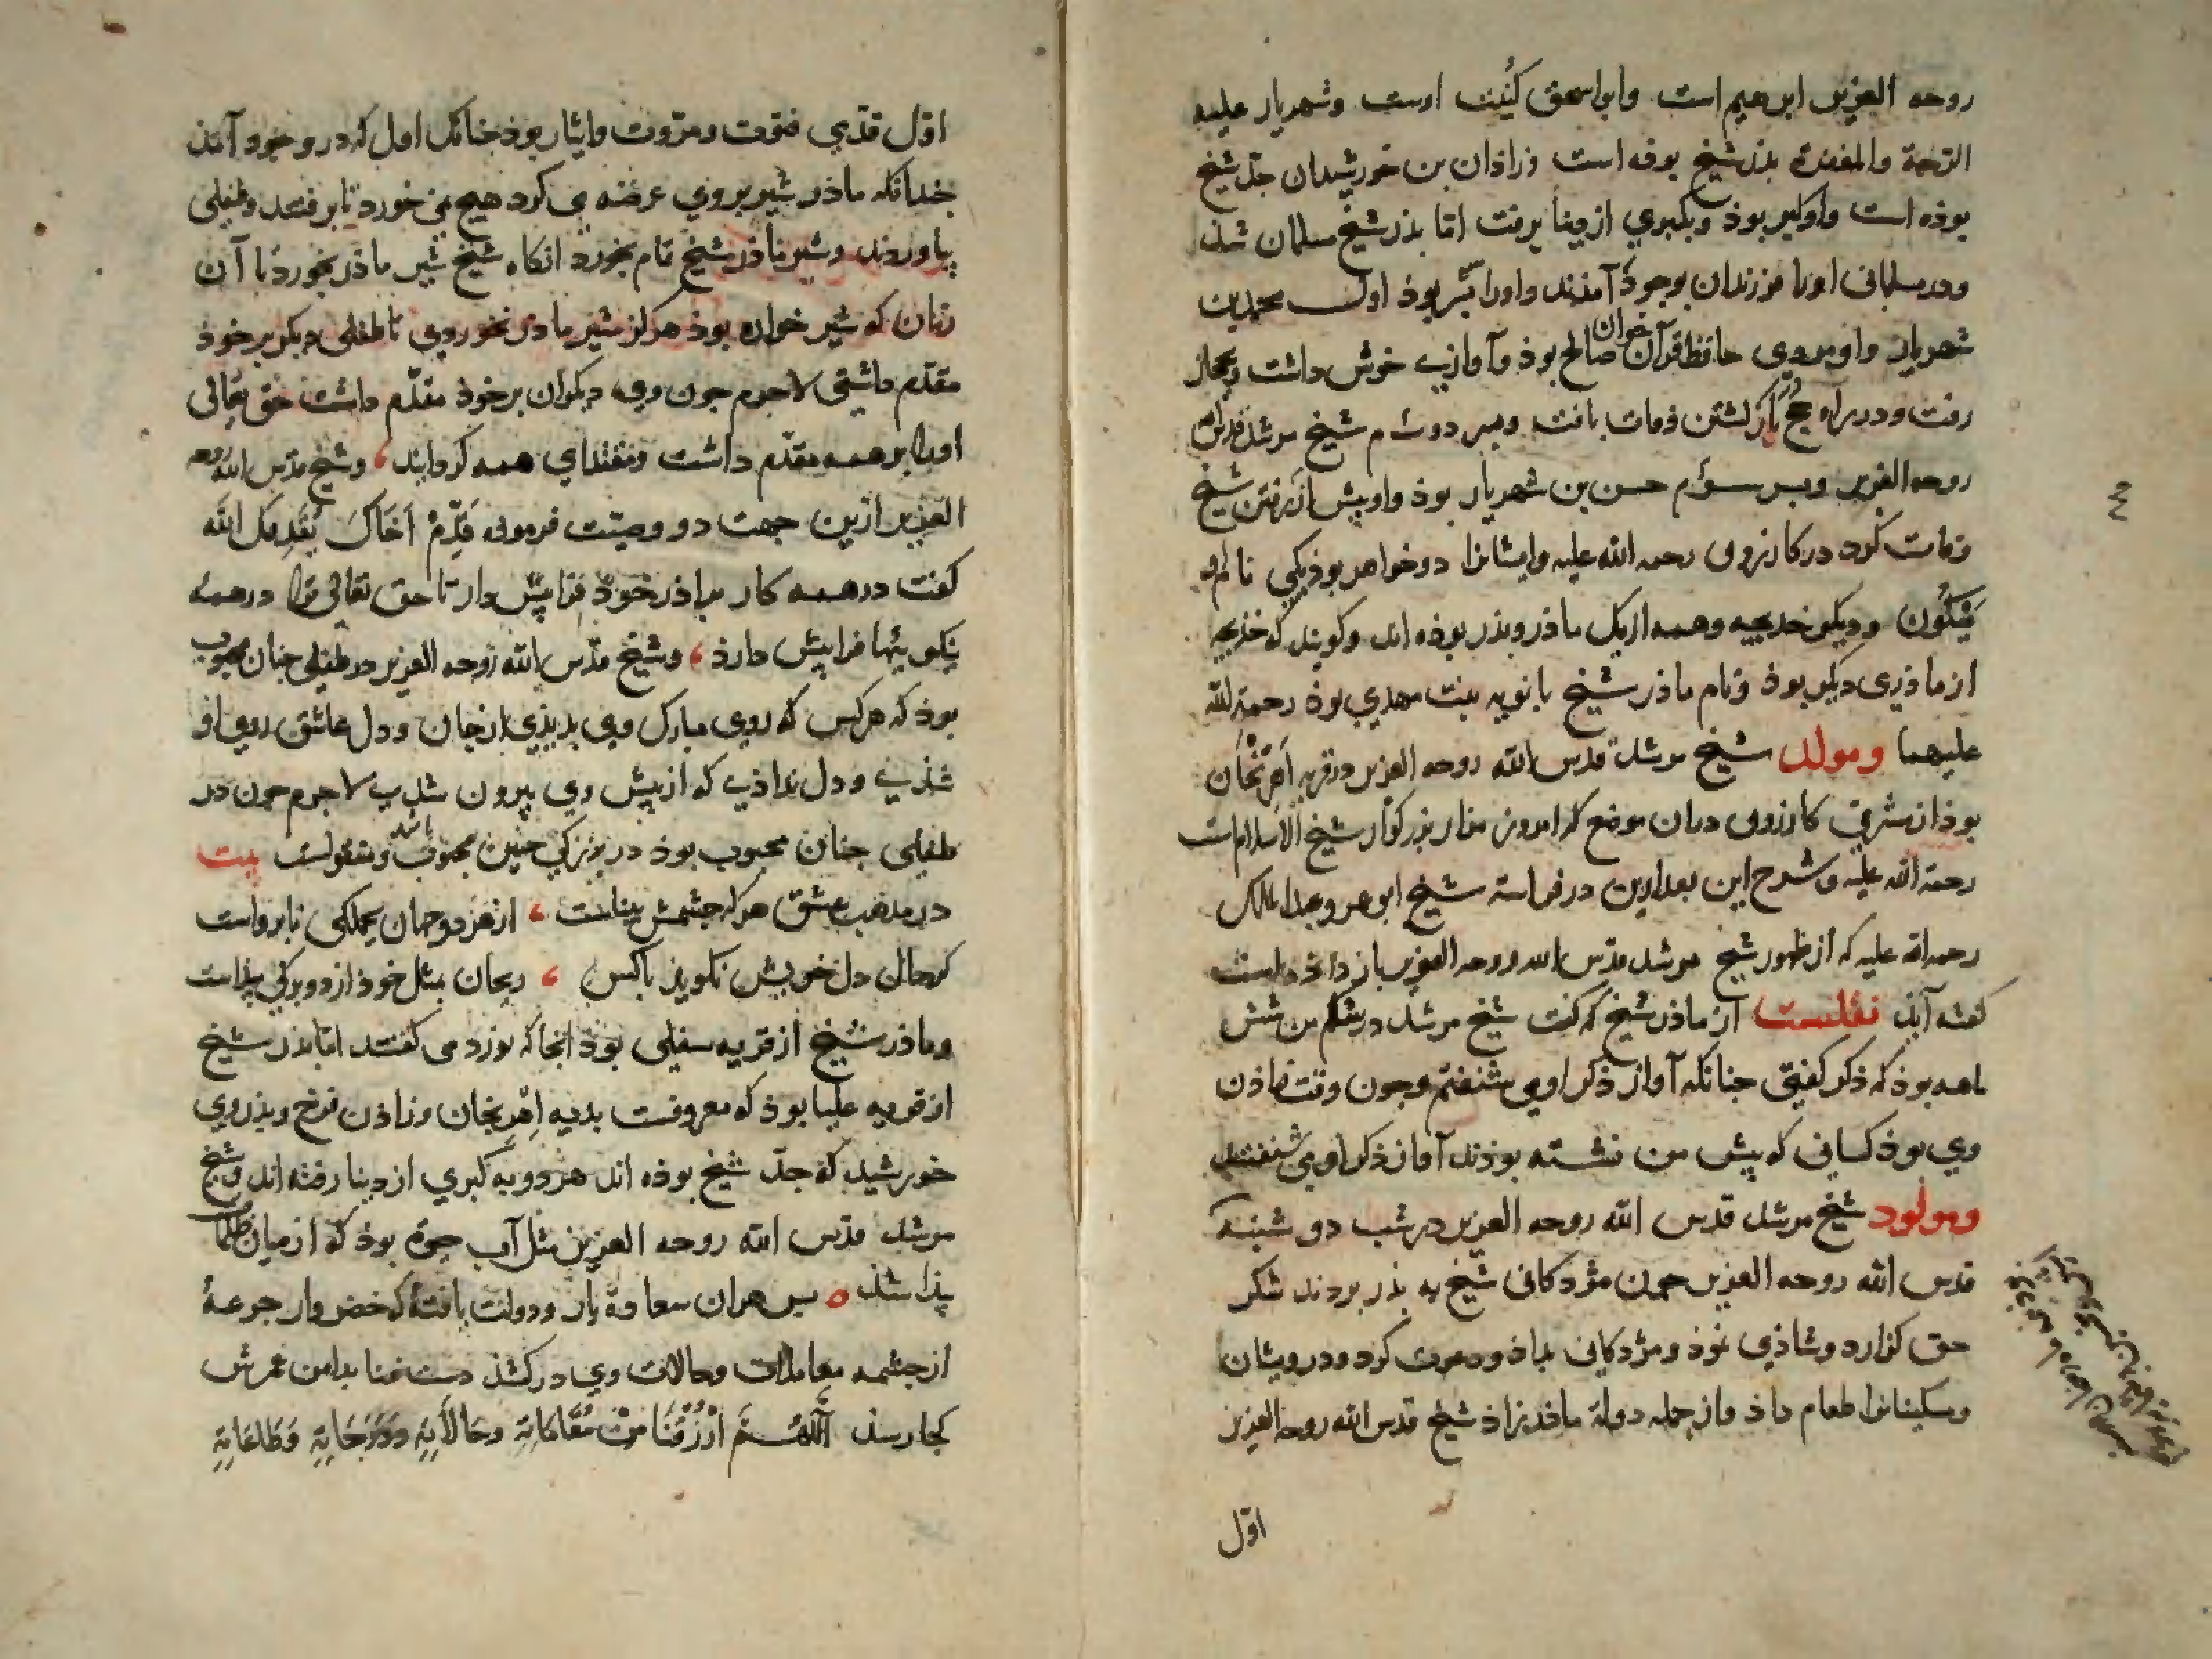 روحه العزیز ابرهیم است وابواسحق کُنیت اوست وشهریار علیه
الرّحمة والمغفرة بذر شیخ بوذه است وزاذان بن خورشیدان جدّ شیخ
بوذه است واو کبر بوذ وبکبری از دینا برفت امّا بذر شیخ مسلمان شذ
ودر مسلمانی او را فرزندان بوجوذ آمذند واورا سه بسر بوذ اول محمد بن
شهریار واو مردی حافظ قرآن خوان صالح بوذ وآوازی خوش داشت وبحجاز
رفت ودر راه حج در بازکشتن وفات یافت وبسر دوم شیخ مرشد قدس الله
روحه العزیز وبسر سوم حسن بن شهریار بوذ واو پیش از رفتن شیخ
وفات کرد در کازرون رحمه الله علیه وایشانرا دو خواهر بوذ یکی نام او
ودیکر خدیجه وهمه از یک ماذر وبذر بوذه اند وکویند که خدیجه
از ماذری دیکر بوذ ونام ماذر شیخ بانویه بنت مهدی بوذ رحمة الله
علیهما ومولد شیخ مرشد قدس الله روحه العزیز در قریه اَهرنجان
بوذ از شرقی کازرون دران موضع که امروز مزار بزرکوار شیخ الاسلام است
رحمة الله علیه وشرح این بعد ازین در فراسة شیخ ابوعمرو عبدالملک
رحمه الله علیه که از ظهور شیخ مرشد قدس الله روحه العزیز باز داذه است
کفته آید نقلست از ماذر شیخ که کفت شیخ مرشد در شکم من شش
ماهه بوذ که ذکر کفتی جنانکه آواز ذکر او می شنفتم وجون وقت زاذن
وی بوذ کسانی که پیش من نشسته بوذند آواز ذکر او می شنفتند
ومولود شیخ مرشد قدس الله روحه العزیز در شب دو شنبه
قدس الله روحه العزیز جون مژدکانی شیخ به بذر بردند شکر
حق کزارد وشاذی نموذ ومژدکانی بداذ ودعوت کرد ودرویشان
ومسکینانرا طعام داذ واز جمله دولة ماذرزاذ شیخ قدس الله روحه العزیز
اوّل
اوّل قدمی فتوت ومروّت وایثار بوذ جنانک اول که در وجود آمذ
جندانکه ماذر شیر بروی عرضه می کرد هیچ نمی خورد تا برفتند وطفلی
بیاوردند وشیر ماذر شیخ تمام بخورد انکاه شیخ شیر ماذر بخورد تا آن
زمان که شیر خواره بوذ هرکز شیر ماذر نخوردی تا طفلی دیکر بر خوذ
مقدّم داشتی لاجرم جون وی دیکران برخوذ مقدّم داشت حق تعالی
اورا بر همه مقدم داشت ومقتدای همه کردانید وشیخ قدس الله روحه
العزیز ازین جهت دو وصیّت فرمودی قَدِّمْ اَخَاکَ یُقَدِمکَ الله
کفت در همه کار براذر خوذ فرا پیش دار تا حق تعالی ترا در همه
نیکویها فرا پیش دارذ وشیخ قدّس الله روحه العزیز در طفلی جنان محبوب
بوذ که هر کس که روی مبارک وی بدیذی از جان ودل عاشق روی او
شذی ودل نداذی که از پیش وی بیرون شدی لاجرم جون در
طفلی جنان محبوب بوذ در بزرکی جنین محبوب باشد ومقبولست بیت
در مذهب عشق هرکه جشمش بیناست از هر دو جهان بجملکی نابرواست
کرحال دل خویش نکویذ باکس ریحان بمثل خوذ از دو برکی پیذاست
وماذر شیخ از قریه سفلی بوذ انجا که نورد می کفتند امّا بذر شیخ
از قریه علیا بوذ که معروفست بدیه اهرنجان وزاذن فرخ وبذر وی
خورشید که جدّ شیخ بوذه اند هر دو به کبری از دینا رفته اند وشیخ
مرشد قدّس الله روحه العزیز مثل آب حیوة بوذ که از میان ظلمات
پیذا شذ بس هران سعادة یار ودولت یافتهٔ که خضر وار جرعهٔ
از جشمه معاملات وحالات وی درکشذ دست فنا بدامن عمرش
کجا رسذ اَللّهُمَّ ارْزُقْنَا مِنْ مُقَامَاتِهِ وحَالَاتِهِ وَدَرَجَاتِهِ وَطَاعَاتِهِ